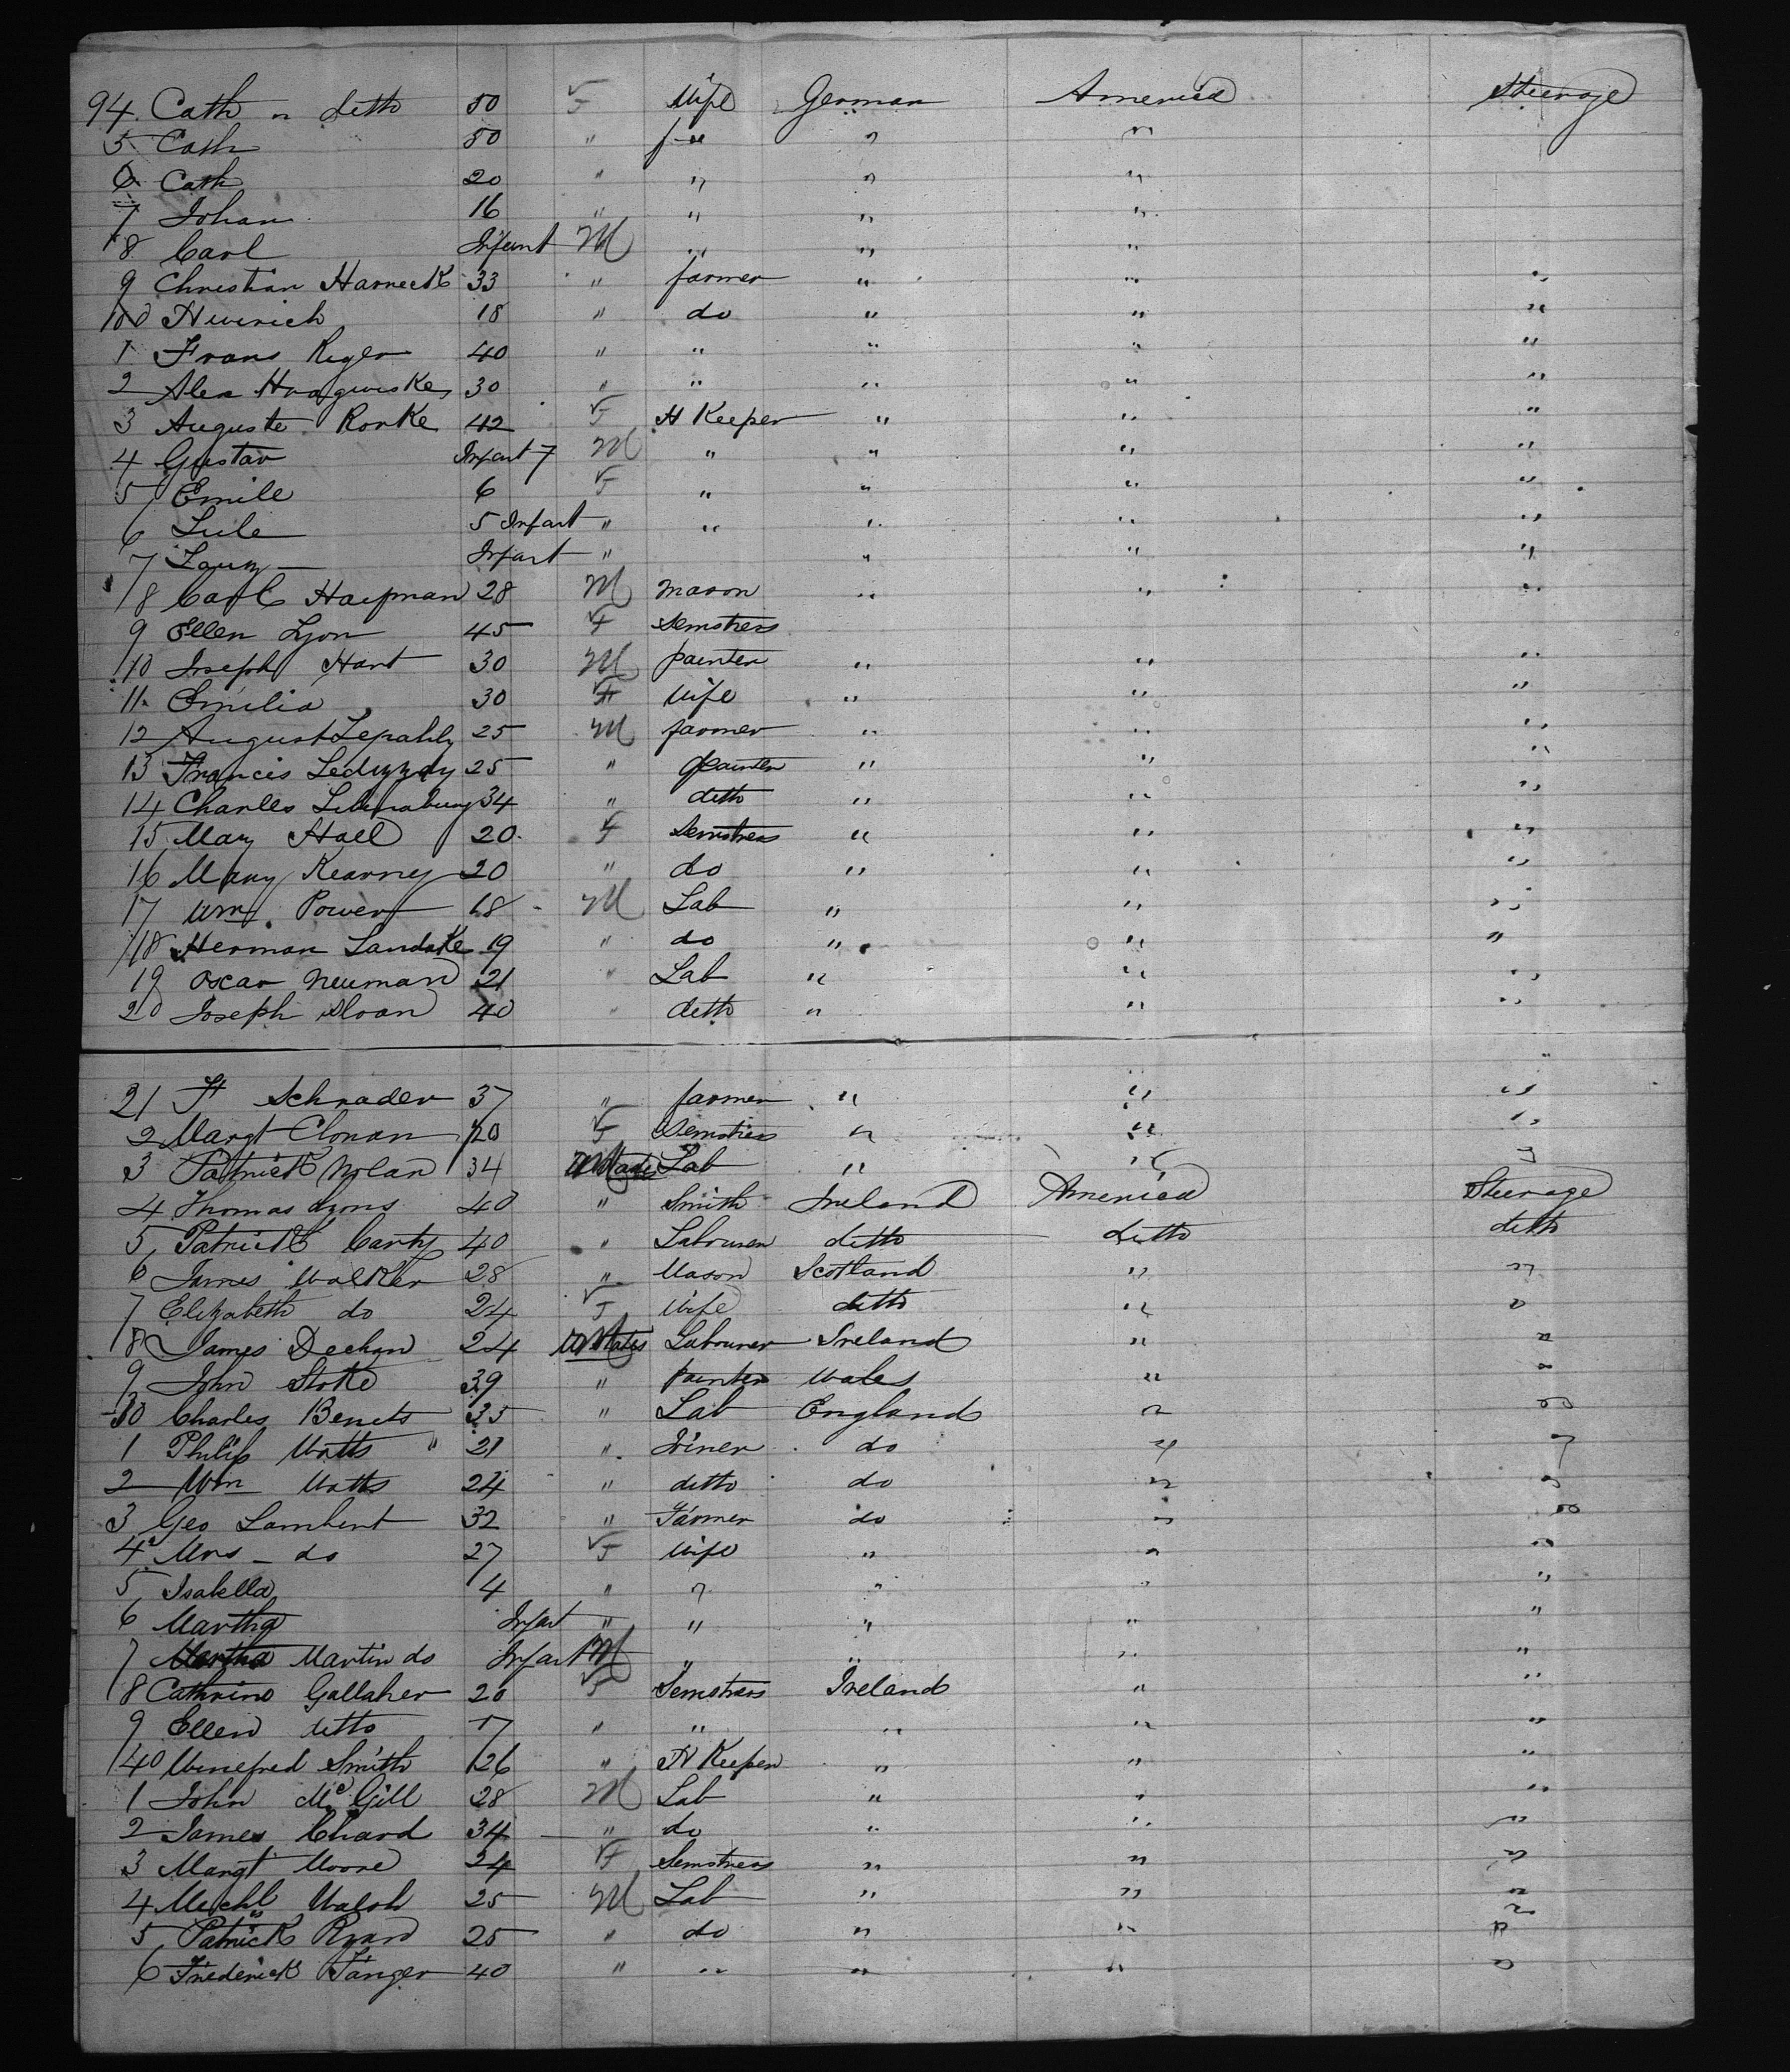 94. Cath " ditto 50 F Wife German America Steerage
5 Cath 50 " " "
6 Cath 20 " " " "
7 Johan 16 " " " "
8 Carl Infant M " " "
9 Christian Harneck 33 " farmer " " "
100 Heinrich 18 " do " " "
1 Frans Reger 40 " " " " "
2 Alex 30 " " " " "
3 Auguste Ronke 42 F H Keeper " " "
4 Gustav Infant 7 M " " " "
5 Emile 6 F " " " "
6 Lule 5 Infant " " " " "
7 Infant " " " "
8 Carl Haipman 28 M mason " " "
9 Ellen Lyon 45 F Semstress
10 Joseph Hart 30 M painter " " "
11 Emilia 30 F Wife " " "
12 August 25 M farmer " " "
13 Francis 25 " painter " " "
14 Charles 34 " ditto " " "
15 Mary Hall 20 F Semstress " " "
16 Mary Kearney 20 " do " " "
17 Wm Power 18 M Lab " " "
18 Herman Landake 19 " do " " "
19 Oscar Neuman 21 " Lab " " "
20 Joseph Sloan 40 " ditto " " "
21 H Schrader 37 " farmer " " "
2 Margt Clonan 20 F Semstress " " "
3 Patrick Nolan 34 M Lab " " "
4 Thomas Lyons 40 " Smith Ireland America Steerage
5 Patrick Carty 40 " Labourer ditto ditto ditto
6 James Walker 28 " Mason Scotland " "
7 Elizabeth do 24 F Wife ditto " "
8 James Deehan 24 M Labourer Ireland " "
9 John Stoke 39 " painter Wales " "
30 Charles Benets 35 " Lab England " "
1 Philip Watts " 21 " do " "
2 Wm Watts 24 " ditto do " "
3 Geo Lambert 32 " Farmer do " "
4 Mrs - do 27 F Wife " " "
5 Isabella 4 " " " " "
6 Martha Infant " " " " "
7 Martin do Infant M " " " "
8 Cathrine Gallaher 20 F Semstress Ireland " "
9 Ellen ditto 17 " " " " "
40 Winefred Smith 26 " H Keeper " " "
1 John McGill 28 M Lab " " "
2 James Chard 34 " do " " "
3 Margt Moore 24 F Semstress " " "
4 Michl Walsh 25 M Lab " " "
5 Patrick Ryan 25 " do " " "
6 Frederick Tanger 40 " " " " "